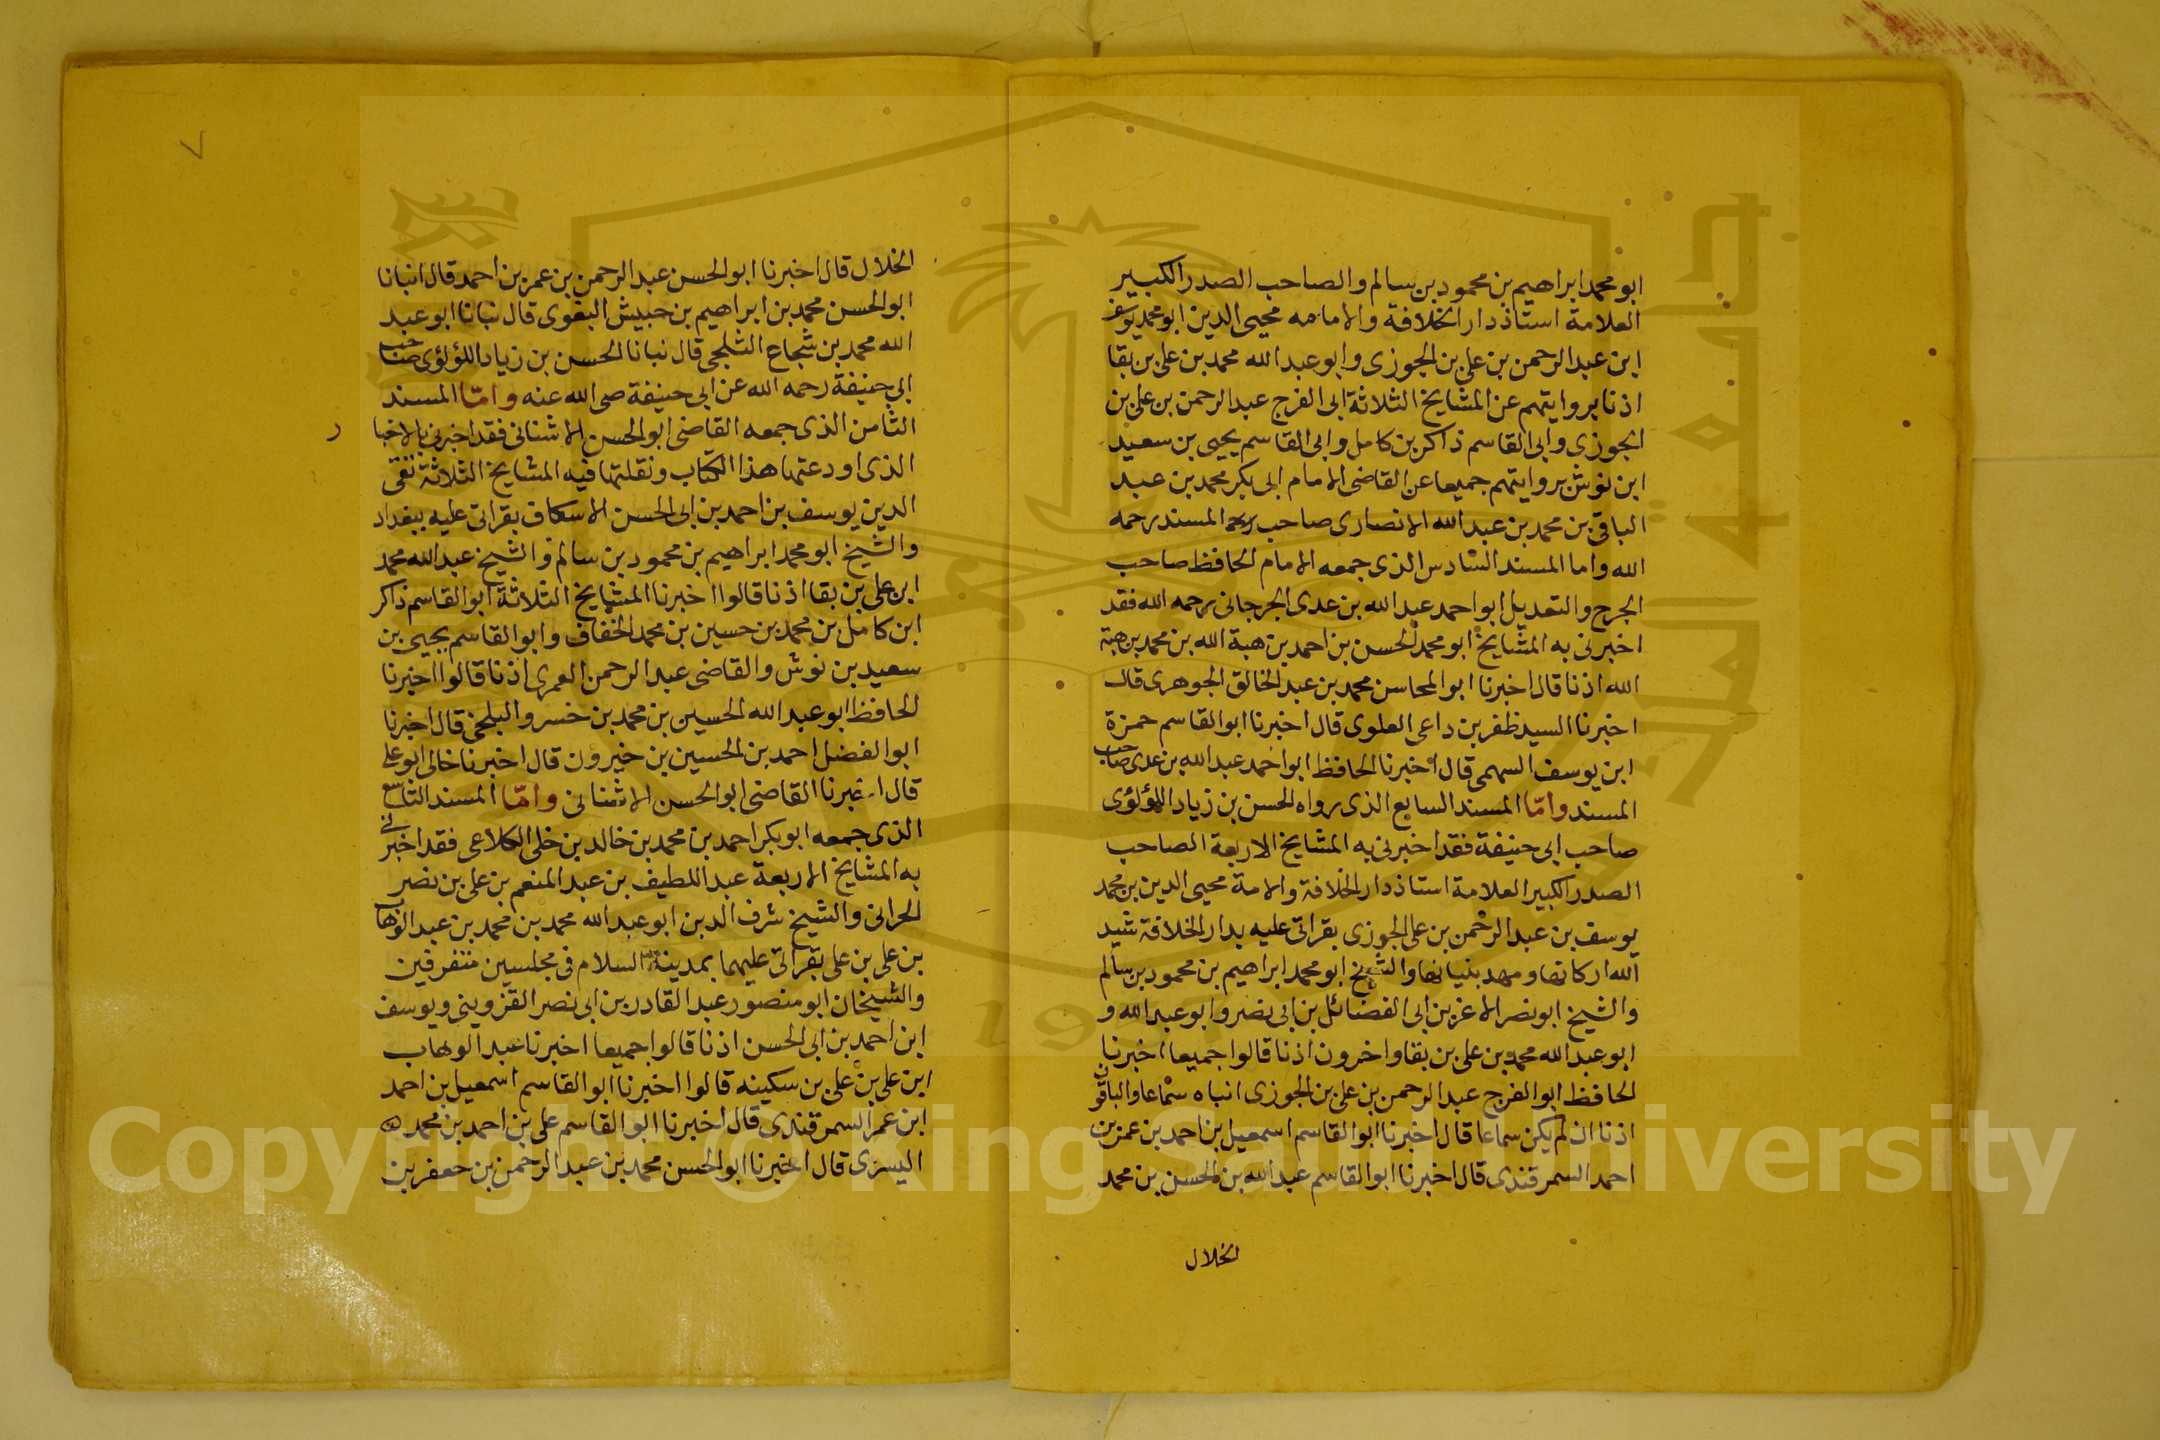 ابو محمد ابراهيم بن محمود بن سالم والصاحب الصدر الكبير
العلامة استاذ دار الخلافة والامامه محيى الدين ابو محمد يوسف
ابن عبد الرحمن بن على بن الجوزى وابو عبد الله محمد بن على بن بقا
اذنا بروايتهم عن المشايخ الثلاثة ابى الفرج عبد الرحمن بن على بن
الجوزى وابى القاسم ذاكر بن كامل وابى القاسم يحيى بن سعيد
ابن نوش بروايتهم جميعا عن القاضى الامام ابى بكر محمد بن عبد
الباقى بن محمد بن عبد الله الانصارى صاحب المسند رحمه
الله واما المسند السادس الذى جمعه الامام الحافظ صاحب
الجرح والتعديل ابو احمد عبد الله بن عدى الجرجانى رحمه الله فقد
اخبرنى به المشايخ ابو محمد الحسن بن احمد بن هبة الله بن محمد بن هبة
الله اذنا قال اخبرنا ابو المحاسن محمد بن عبد الخالق الجوهرى قال
اخبرنا السيد ظفر بن داعى العلوى قال اخبرنا ابو القاسم حمزة
ابن يوسف السهمى قال اخبرنا الحافظ ابو احمد عبد الله بن عدى صاحب
المسند وامّا المسند السابع الذى رواه الحسن بن زياد اللؤلؤى
صاحب ابى حنيفة فقد اخبرنى به المشايخ الاربعة الصاحب
الصدر الكبير العلامة استاذ دار الخلافة والامة محيى الدين بن محمد
يوسف بن عبد الرحمن بن على الجوزى بقراتى عليه بدار الخلافة شيد
الله اركانها ومهد بنيانها والشيخ ابو محمد ابراهيم بن محمود بن سالم
والشيخ ابو نصر الاغز بن ابى الفضائل بن ابى نصر وابو عبد الله و
ابو عبد الله محمد بن على بن بقا واخرون اذنا قالوا جميعا اخبرنا
الحافظ ابو الفرج عبد الرحمن بن على بن الجوزى انباه سماعا والباقون
اذنا ان لم يكن سماعا قال اخبرنا ابو القاسم اسمعيل بن احمد بن عمر بن
احمد السمرقندى قال اخبرنا ابو القاسم عبد الله بن الحسن بن محمد
الخلال
الخلال قال اخبرنا ابو الحسن عبد الرحمن بن عمر بن احمد قال انبانا
ابو الحسن محمد بن ابراهيم بن حبيش البغوى قال نبانا ابو عبد
الله محمد بن شجاع الثلجى قال نبانا الحسن بن زياد اللؤلؤى صاحب
ابى حنيفة رحمه الله عن ابى حنيفة رضى الله عنه وامّا المسند
الثامن الذى جمعه القاضى ابو الحسن الاشنانى فقد اخبرنى بالاخبا
ر
الذى اودعتها هذا الكتاب ونقلتها فيه المشايخ الثلاثة تقى
الدين يوسف بن احمد بن ابى الحسن الاسكاف بقراتى عليه ببغداد
والشيخ ابو محمد ابراهيم بن محمود بن سالم والشيخ عبد الله محمد
ابن على بن بقا اذنا قالوا اخبرنا المشايخ الثلاثة ابو القاسم ذاكر
ابن كامل بن محمد بن حسين بن محمد الخفاف وابو القاسم يحيى بن
سعيد بن نوش والقاضى عبد الرحمن العمرى اذنا قالوا اخبرنا
الحافظ ابو عبد الله الحسين بن محمد بن خسرو البلخى قال اخبرنا
ابو الفضل احمد بن الحسين بن خيرون قال اخبرنا خالى ابو على
قال اخبرنا القاضى ابو الحسن الاشنانى وامّا المسند التاسع
الذى جمعه ابو بكر احمد بن محمد بن خالد بن خلى الكلاعى فقد اخبرنى
به المشايخ الاربعة عبد اللطيف بن عبد المنعم بن على بن نصر
الحرانى والشيخ شرف الدين ابو عبد الله محمد بن محمد بن عبد الوهاب
بن على بن على بقراتى عليهما بمدينة السلام فى مجلسين متفرقين
والشيخان ابو منصور عبد القادر بن ابى نصر القزوينى ويوسف
ابن احمد بن ابى الحسن اذنا قالوا جميعا اخبرنا عبد الوهاب
ابن على بن على بن سكينه قالوا اخبرنا ابو القاسم اسمعيل بن احمد
ابن عمر السمرقندى قال اخبرنا ابو القاسم على بن احمد بن محمد
اليسرى قال اخبرنا ابو الحسن محمد بن عبد الرحمن بن جعفر بن
٧
جامعة الملك سعود
1957
Copyright © King Saud University